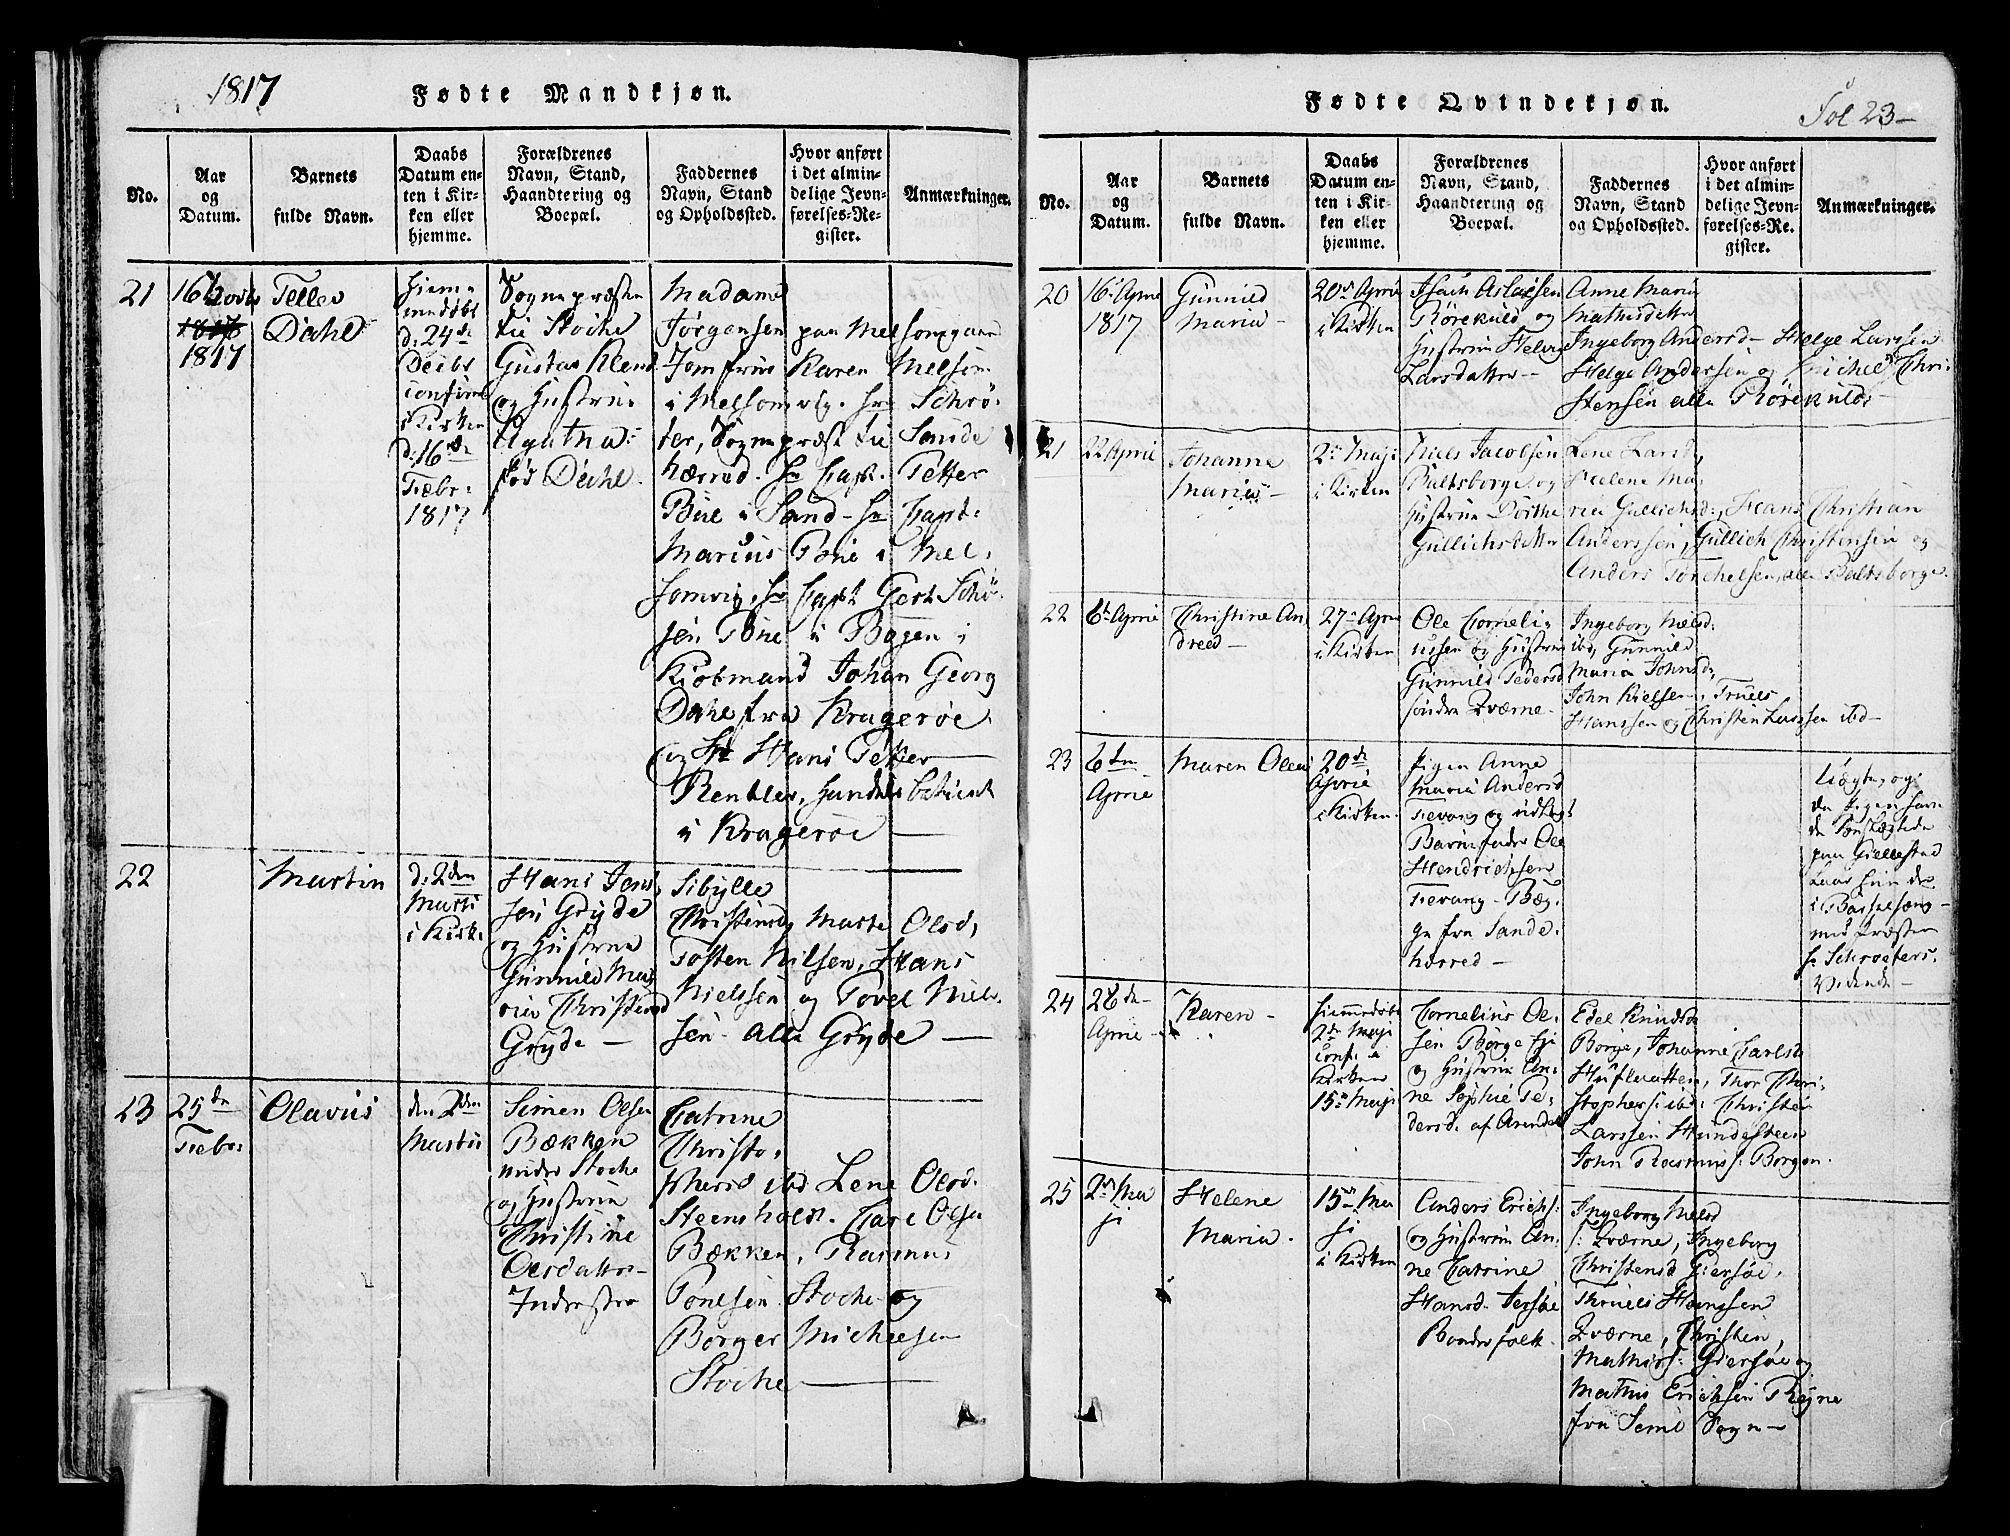 1817
Fødte Mandkjøn.
No.
Aar
og
Datum.
Barnets
fulde Navn.
Daabs
Datum en-
ten i Kir-
ken eller
hjemme.
Forældrenes
Navn, Stand,
Haandtering og
Boepæl.
Faddernes
Navn, Stand
og Opholdssted.
Hvor anført
i det almin-
delige Jevn-
førelses-Re-
gister.
Anmærkninger.
21
1817
Tellev
Dahl
hiem-
medøbt
d. 24de
confirm
i Kirken
d: 16de
Febr:
1817
Sognepræsten
til Stocke
Gustav
og Hustrue
Dahl
Madame
Jørgensen paa Melsomgaard
Jomfrue Karen Melsom
i Melsomvig. Hr Schrø-
ter, Sognepræst til Sande
herred. Hr Capt. Petter
Bue i Sand - Hr Capt:
Marcus Bue i Mel-
somvig, Hr Capt Gert Schø-
sen Bue i Bogen i
Kiøbmand Johan Georg
Dahl fra Kragerøe
og Hr Hans Petter
Rentler, Handels betient
i Kragerøe
22
Martin
d: 2den
Marti
i Kirk:
Hans Jens
sen Gryde
og Hustrue
Gunnild Ma
ria Christensd
Gryde
Sibylle
Christensd, Marte Olsd,
Tosten Nilsen, Hans
Nielssen og Povel Niel-
sen - alle Gryde
23
25de
Febr
Olavus
den 2den
Martii
Simen Olsen
Bækken
under Stocke
og Hustrue
Christine
Olsdatter
Catrine
Christo-
phersd ibd Lene Olsd.
Steensholdt. Carl Olsen
Bækken, Rasmus
Povelsen Stocke og
Borger Michelsen
Stocke
Fødte Qvindekjøn.
Fol 23
No.
Aar
og
Datum.
Barnets
fulde Navn.
Daabs
Datum en-
ten i Kir-
ken eller
hjemme.
Forældrenes
Navn, Stand,
Haandtering og
Boepæl.
Faddernes
Navn, Stand
og Opholdssted.
Hvor anført
i det almin-
delige Jevn-
førelses-Re-
gister.
Anmærkninger.
20
16 April
1817
Gunnild
Maria
20de April
i Kirken
Isach Aslacsen
Rørekuld og
Hustrue Helvig
Larsdatter
Anne Maria
Mathisdatter
Ingeborg Andersd - Helge Larssen
Helge Andersen og Michel Chri-
stensen alle Rørekuld
21
22 April
Johanne
Maria
2de Maji
i Kirken
Niels Jacobsen
Bultsborge og
Hustrue Dorthe
Gullichsdatter
Lene Larsd,
Helene Ma
ria Gullichsd, Hans Christian
Anderssen, Gullich Christensen og
Anders Torchelsen, alle Bultsborge.
22
6te April
Christine An
drea
27de April
i Kirken
Ole Corneli-
ussen og Hustrue
Gunnild Pedersd
søndre Zværne
Ingeborg Nielsd:
ibd, Gunnild
Maria Johnsd,
John Nielsen, Truels
Hanssen og Christen Larssen ibd
23
6te
April
Maren Olea
20de
April
i Kirken
Pigen Anne
Maria Andersd
Fevang og udlagt
Barnefader Ole
Hendrichsen
Fevang - Beg-
ge fra Sande-
herred
Uægte, og
da Pigen
paa Gillestad
laae hun der
i Barselseng
med Præsten
Hr Schrøeters
Vidende
24
26de
April
Karen
hiemmedøbt
2de Maji
Conf: i
Kirken
15de Maji
Cornelius Ol-
sen Borge
og Hustrue An-
ne Sophie Pe-
dersd. af Arendal
Edel Knudsd
Borge, Johanne Carlsd
Thor Chri-
stophers: ibd: Christen
Larssen Hundesteen
John Rasmuss: Borgen.
25
2de Ma
ji
Helene
Maria
15de Ma
ji
i Kirken
Anders Erichs:
og Hustrue An-
ne Catrine
Hansd. Jersøe
Bondefolk
Ingeborg Nielsd
s: Zværne, Ingeborg
Christensd Giersøe,
Truels Hanssen
Zværne, Christen
Mathiss: Giersøe og
Mathis Erichsen
fra Semb Sogn